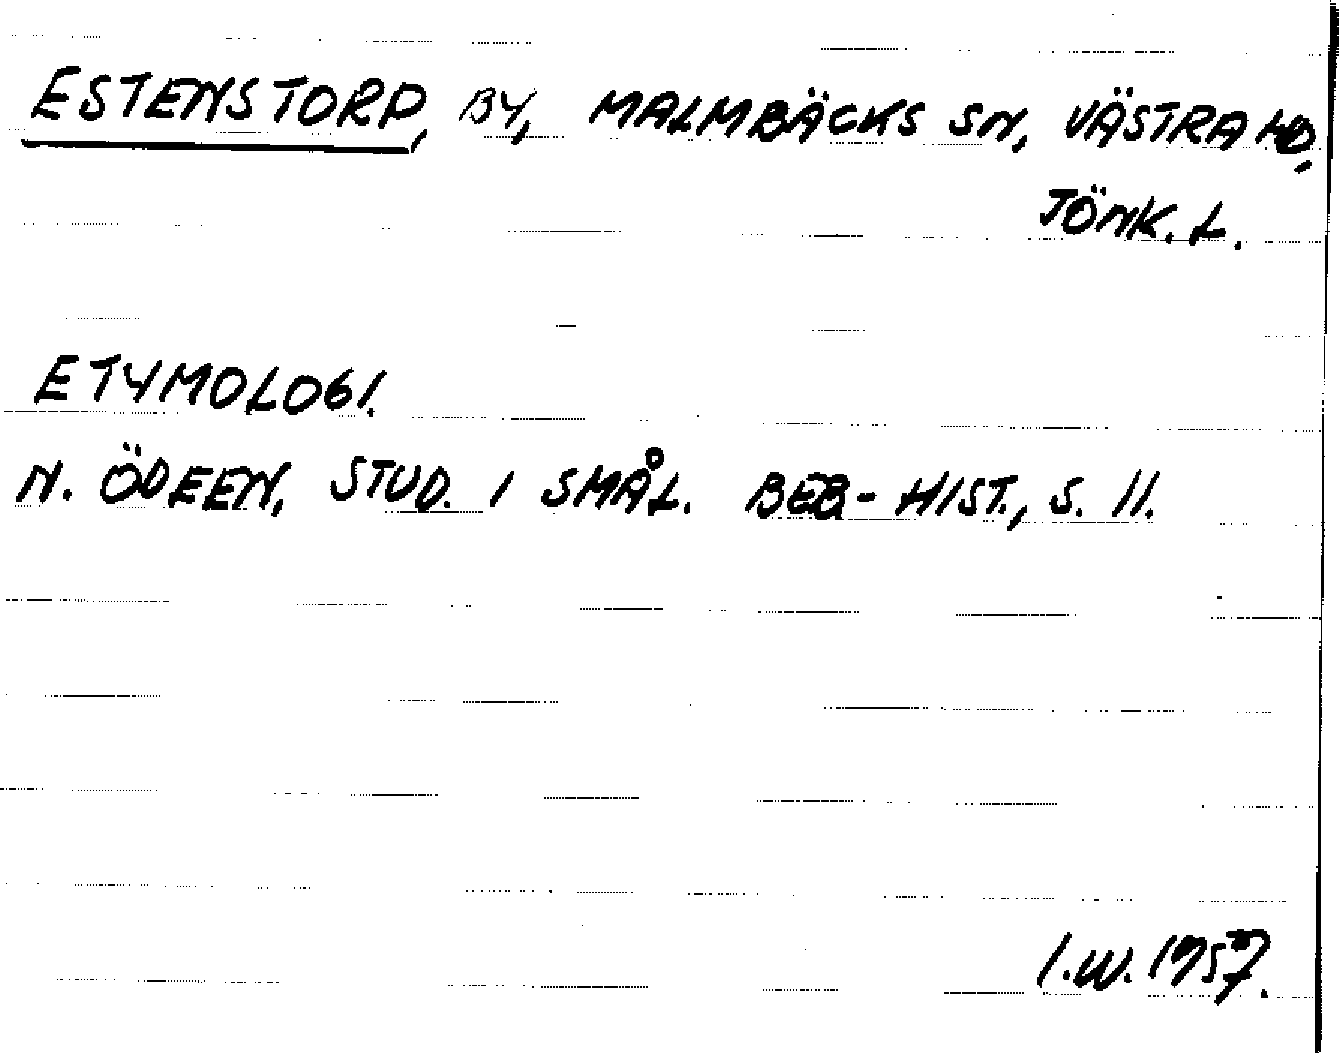 ESTENSTORP, BY, MALMBÄCKS SN, VÄSTRA HD,
JÖNK. L.
ETYMOLOGI.
N. ÖDEEN, STUD. I SMÅL. BEB-HIST., S. 11.
I.W. 1957.